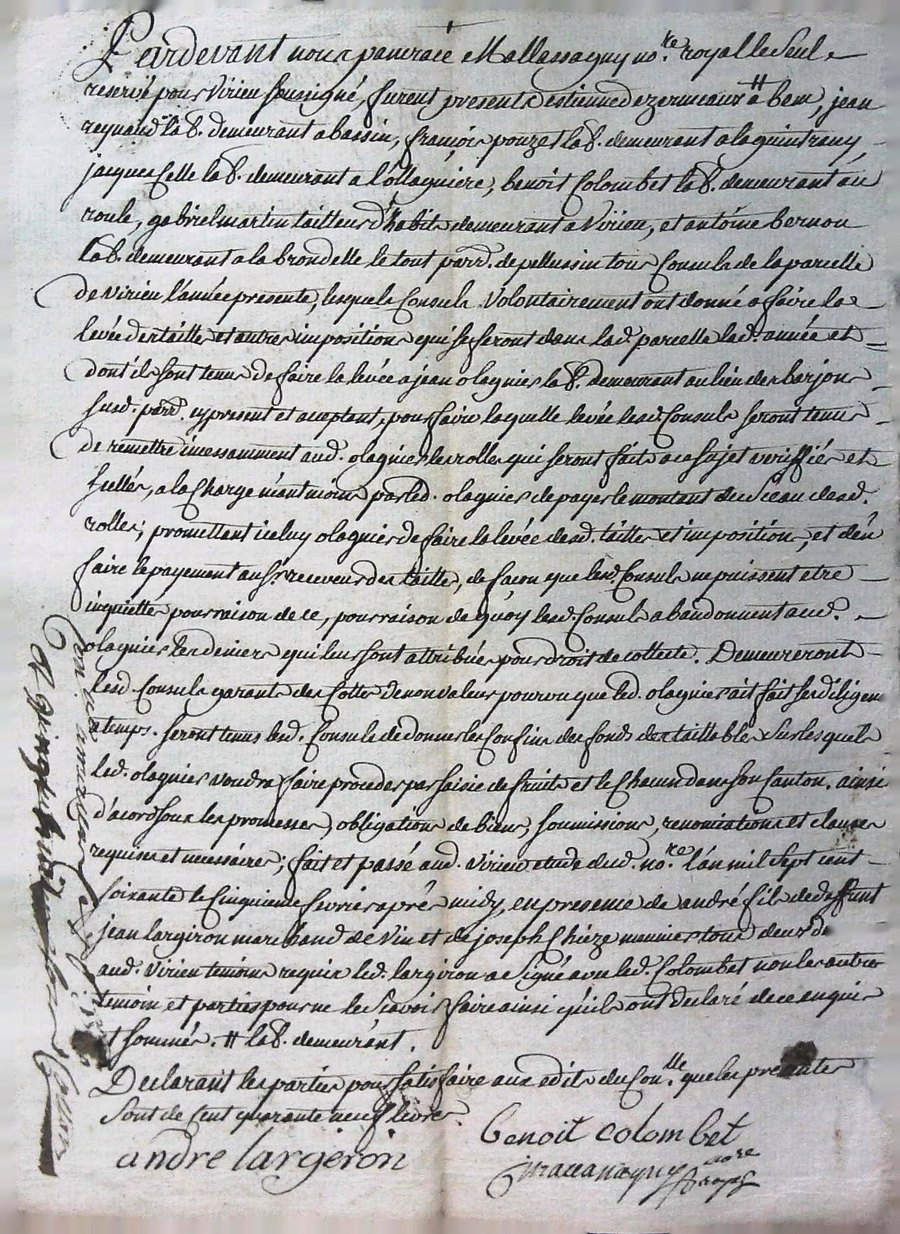 Pardevant nous pancrace Mallassagny no.re royal le seul
reservé pour Virieu soussigné, furent presents estienne dezermeaux # a bem, jean
reynaud lab. demeurant a bassin, françois pouzet lab. demeurant a laquintrany,
jacques Celle lab. demeurant a l'ollagniere, benoit Colombet lab. demeurant au
roule, gabriel martin tailleur d'habits demeurant a Virieu, et antoine bernou
lab. demeurant a la brondelle le tout parr. de pellussin tous Consuls de la parcelle
de virieu l'année presente, lesquels Consuls volontairement ont donné a faire la
levée des taille et autres impositions qui se feront dans lad. parcelle lad. année et
dont ils sont tenus de faire la levée a jean olagnier lab. demeurant au lieu des barjons
susd. parr. cy present et aceptant, pour faire laquelle levée lesd. Consuls seront tenus
de remettre incessamment aud. olagnier les rolles qui seront faits a ce sujet veriffiés et
sellés, a la charge néantmoins par led. olagnier de payer le montant du sceau desd.
rolles; promettant iceluy olagnier de faire la levée desd. tailles et imposition, et d'en
faire le payement au sr. receveur des taille, de facon que lesd. Consuls ne puissent etre
inquiettés pour raison de ce, pour raison de quoy lesd. Consuls abandonnent aud.
olagnier les deniers qui leur sont attribués pour droit de collecte. Demeureront
lesd. Consuls garants des Cottes de non valeur pourvu que led. olagnier ait fait ses diligens
a temps. seront tenus lesd. Consuls de donner les Confins des fonds des taillables sur lesquels
led. olagnier voudra faire proceder par saisie de fruits et le Chacun dans son Canton. ainsi
d'acord sous les promesses, obligations de biens, soumissions, renonciations et clauses
requises et necessaires; fait et passé aud. Virieu etude dud. no.re l'an mil sept cent
soixante le Cinquieme fevrier aprés midy, en presence de andré fils de deffunt
jean largiron marchand de Vin et de joseph Chièze meunier tous deux de
aud. Virieu temoins requis led. largiron a signé avec led. Colombet non les autres
temoin et parties pour ne le scavoir faire ainsi qu'ils ont declaré de ce enquis
et sommés. # lab. demeurant.
Declarant les parties pour satisfaire aux edits du Con.lle que les presentes
sont de Cent quarante neuf livres
benoit colombet
andre largeron
no.re royal